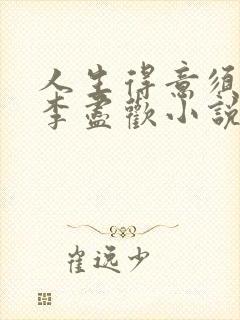 人生得意須
李盡歡小說
崔远少